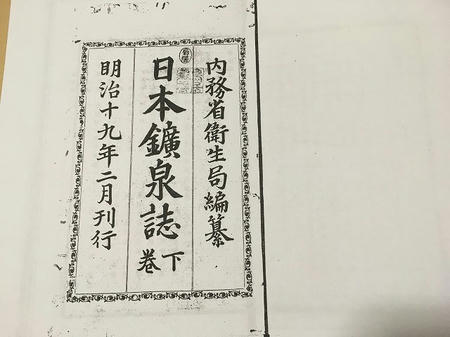 内務省衛生局編纂
日本鑛泉誌 下巻
明治十九年二月刊行